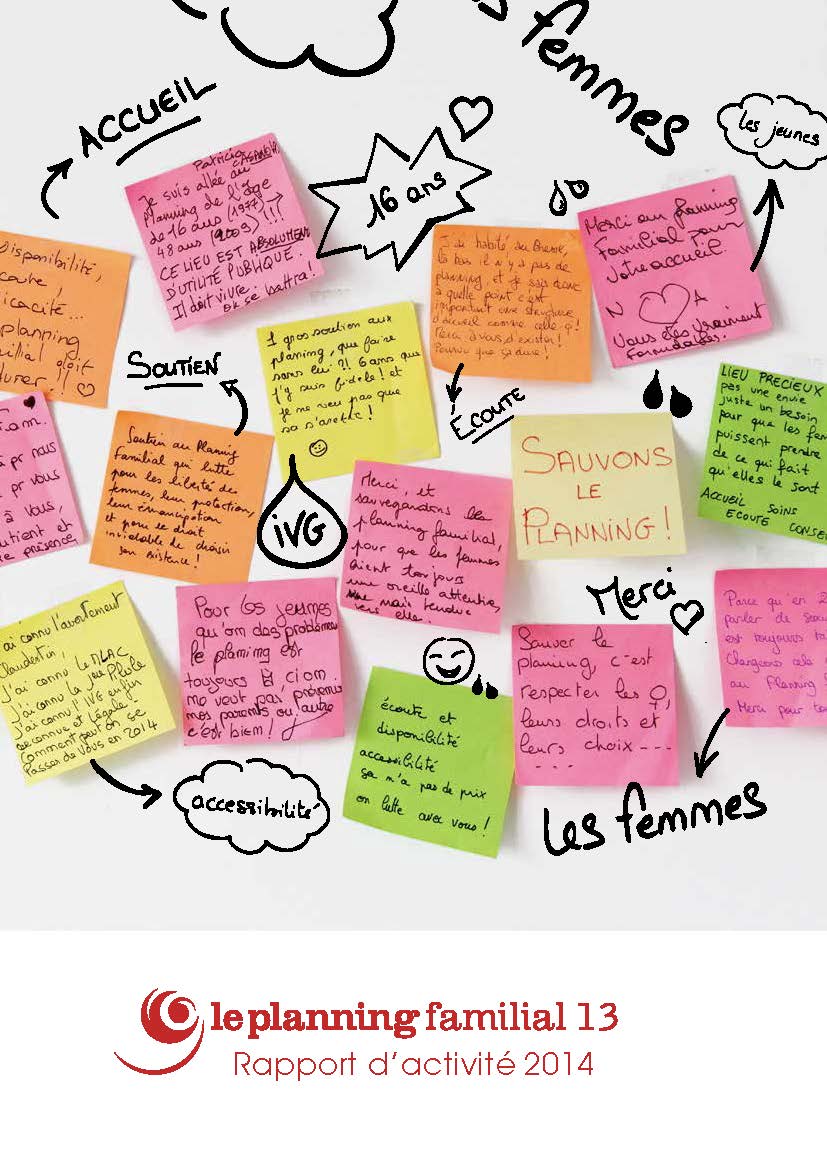 les femmes
les jeunes
ACCUEIL
Patricia
Je suis allée au
Planning de l'âge
de 16 ans (1977)
48 ans (2009) !!!
CE LIEU EST ABSOLUMENT
D'UTILITÉ PUBLIQUE.
Il doit vivre!
on se battra!
16 ans
J'ai habité au Brésil,
là bas il n'y a pas de
planning, et je sais donc
à quelle point c'est
important une structure
d'accueil comme celle-ci!
Merci à vous d'exister!
Pourvu que ça dure!
Merci au planning
Familial pour
votre accueil.
N A
Vous êtes vraiment
formidables.
Disponibilité,
icacité...
planning
ilial doit
durer!!
SOUTIEN
1 gros soutien aux
planing, que faire
sans lui ?! 6 ans que
j'y suis fidèle! et
je ne veu pas que
sa s'arette!
ÉCOUTE
LIEU PRECIEUX
pas une envie
juste un besoin
pour que les fem
puissent prendre
de ce qui fait
qu'elles le sont
ACCUEIL SOINS
ECOUTE CONSEI
pr nous
pr vous
à vous,
utient et
re présence.
Soutien au Planning
Familial qui lutte
pour les liberté des
femmes, leur protection,
leur émancipation
et pour le droit
inviolable de choisir
son existence!
IVG
Merci, et
sauvegardons les
planning familial,
pour que les femmes
aient toujours
une oreille attentive,
une main tendue
vers elle.
SAUVONS
LE
PLANNING!
Merci
J'ai connu l'avortement
clandestin,
J'ai connu le MLAC
J'ai connu la
J'ai connu l'IVG enfin
reconnue et légale!
Comment peut on se
Passer de Vous en 2014
Pour les jeunes
qu'om des problème
le planing est
toujours là ci om
ne veut pas prévenir
mes parents ou autre
c'est bien!
écoute et
disponibilité
accessibilité
sa n'a pas de prix
on lutte avec vous!
Sauver le
planing, c'est
respecter les ♀,
leurs droits et
leurs choix ----
----
Parce qu'en 2
parler de sexu
est toujours ta
Changeons cela
au Planning
Merci pour tou
accessibilité
les femmes
le planning familial 13
Rapport d'activité 2014